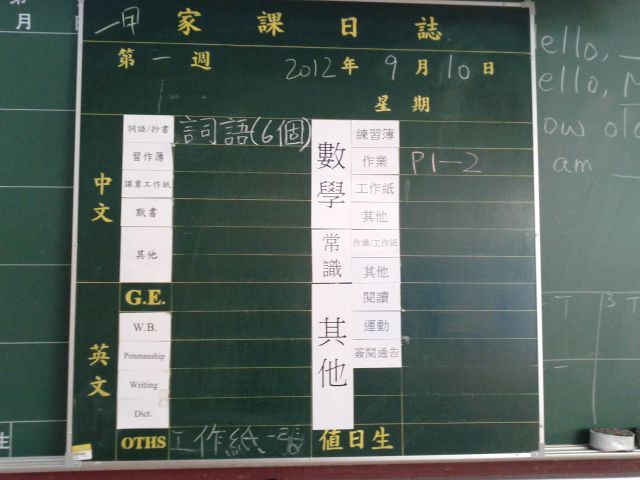 第
月
一甲 家課日誌
第一週 2012年9月10日
星期
中文
詞語/抄書 詞語(6個)
習作簿
課業工作紙
默書
其他
英文
G.E.
W.B.
Penmanship
Writing
Dict.
OTHS 工作紙一張
數學
練習簿
作業 P1-2
工作紙
其他
常識
作業/工作紙
其他
其他
閱讀
運動
簽閱通告
值日生
ello,
ello, N
ow old
am
T 3 T
生